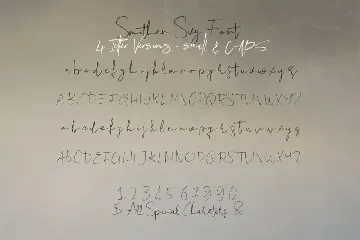 Smither Svg Font
4 Inter Versions - small & CAPS
abcdefghijklmnopqrstuvwxyz
ABCDEFGHIJKLMNOPQRSTUVWXYZ
abcdefghijklmnopqrstuvwxyz
ABCDEFGHIJKLMNOPQRSTUVWXYZ
1 2 3 4 5 6 7 8 9 0
& All Special Charakters &